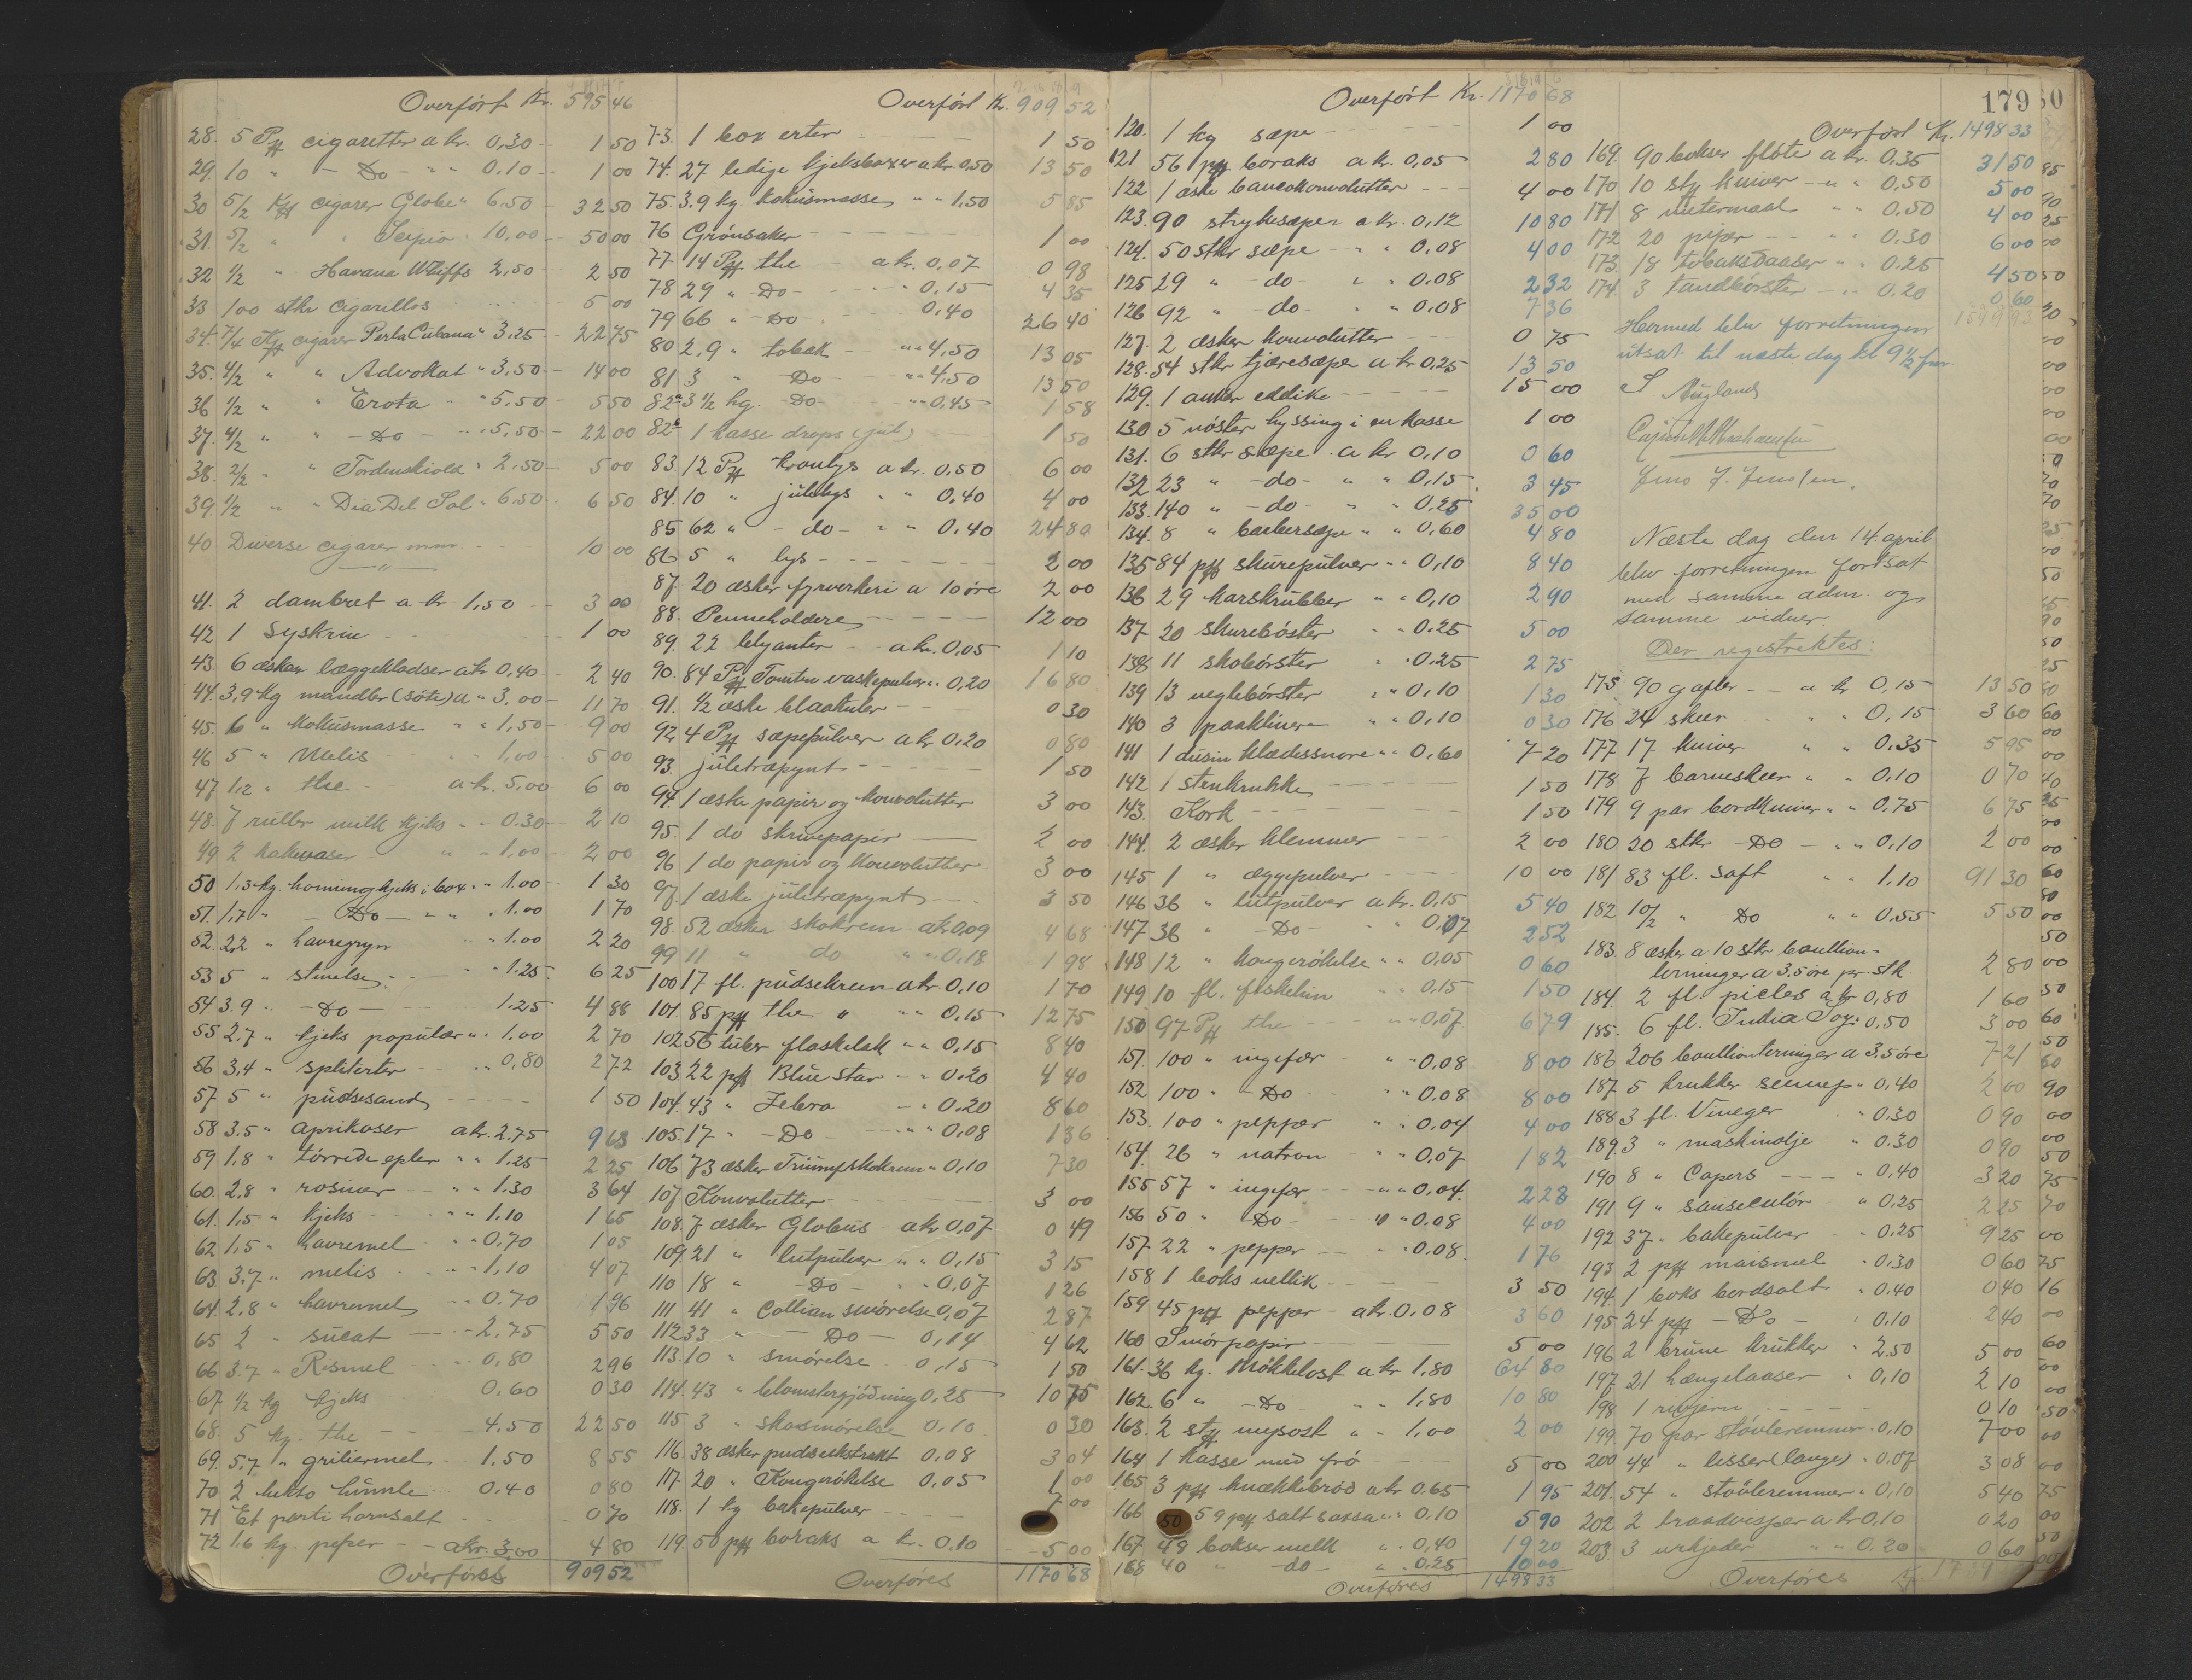 Overført Kr. 595 46
28. 5 Pk cigaretter a kr. 0,30 1 50
29. 10 " - Do - " " 0,10 1 00
30 5/2 Kss cigarer Globe " 6.50 32 50
31. 5/2 " " Scipio " 10,00 50 00
32 1/2 " Havana Whiffs 2,50 2 50
33 100 stkr cigarillos 5 00
34. 7/4 Kss cigarer Perla Cubana " 3.25 22 75
35. 4/2 " " Advokat " 3,50 14 00
36 1/2 " " Erota " " 5,50 5 50
37. 4/2 " " - Do - " " 5,50 22 00
38. 2/2 " " Tordenskiold " 2,50 5 00
39. 1/2 " " Dia Del Sol " 6,50 6 50
40 Diverse cigarer m.m. 10 00
41. 2 dambret a kr 1,50 3 00
42 1 Syskrin 1 00
43. 6 æsker læggeklodser a kr 0,40 2 40
44. 3,9 kg mandler (søte) a " 3,00 11 70
45. 6 " Kokusmasse " " 1,50 9 00
46 5 " Melis 1,00 5 00
47 1,2 " the a kr. 5,00 6 00
48. 7 ruller milk kjeks " " 0.30 2 10
49 2 kakevaser " " 1,00 2 00
50 1,3 kg. honningkjeks i box " " 1.00 1 30
51. 1,7 " - Do - " " 1.00 1 70
52. 2,2 " havregryn " " 1.00 2 20
53 5 " stivelse " 1.25 6 25
54 3.9 " - Do - 1.25 4 88
55 2,7 " kjeks populær " " 1,00 2 70
56 3,4 " spliterter " " 0,80 2 72
57. 5 " pudsesand 1 50
58 3.5 " aprikoser a kr. 2.75 9 63
59 1,8 " tørrede epler " " 1.25 2 25
60. 2,8 " rosiner " " 1.30 3 64
61. 1,5 " kjeks " " 1,10 1 65
62 1,5 " havremel " " 0,70 1 05
63 3.7 " melis " 1,10 4 07
64. 2,8 " havremel " " 0.70 1 96
65 2 " sucat 2,75 5 50
66 3.7 " Rismel 0,80 2 96
67 1/2 kg kjeks 0,60 0 30
68. 5 kg. the 4.50 22 50
69. 5,7 " griliermel 1.50 8 55
70 2 hekto humle 0.40 0 80
71 Et parti hornsalt 0 70
72 1.6 kg. peper a kr. 3,00 4 80
Overføres 909 52
Overført Kr. 909 52
73. 1 box erter 1 50
74. 27 ledige kjeksboxer a kr. 0,50 13 50
75. 3.9 kg. kokusmasse " " 1,50 5 85
76 Grønsaker 1 00
77 14 Pk the a kr. 0,07 0 98
78 29 " - Do - " " 0.15 4 35
79 66 " - Do - 0.40 26 40
80 2,9 " tobak " " 4,50 13 05
81 3 " Do " " 4,50 13 50
82a 3 1/2 hg. - Do - " " 0,45 1 58
82b 1 kasse drops (jul) 1 50
83. 12 Pk kronlys a kr. 0,50 6 00
84. 10 " julelys " " 0,40 4 00
85 62 " - do - " " 0.40 24 80
86 5 " lys 2 00
87. 20 æsker fyrverkeri a 10 øre 2 00
88. Penneholdere 12 00
89. 22 blyanter a kr. 0,05 1 10
90. 84 Pk Tomten vaskepulver " 0,20 16 80
91. 1/2 æske blaakuler 0 30
92 4 Pk sæpepulver a kr 0,20 0 80
93. juletræpynt 1 50
94. 1 æske papir og konvolutter 3 00
95. 1 do skrivepapir 2 00
96 1 do papir og konvolutter 3 00
97. 1 æske juletræpynt 3 50
98. 52 æsker skokrem a kr 0,09 4 68
99 11 " do " " 0.18 1 98
100 17 fl. pudsekrem a kr. 0,10 1 70
101. 85 pk the " " " 0,15 12 75
102 56 tuber flaskelak " " 0,15 8 40
103 22 pk Blue star " 0.20 4 40
104. 43 " Zebra " 0.20 8 60
105. 17 " - Do - " " 0,08 1 36
106 73 æsker Triumfskokrem " 0,10 7 30
107 Konvolutter 3 00
108. 7 æsker Globus a kr 0,07 0 49
109. 21 " lutpulver " " 0,15 3 15
110 18 " - Do - " " 0,07 1 26
111 41 " Collian smørelse 0,07 2 87
112 33 " - Do - 0,14 4 62
113. 10 " smørelse 0,15 1 50
114. 43 " blomstergjødning 0,25 10 75
115 3 " skosmørelse 0,10 0 30
116 38 æsker pudseekstrakt 0,08 3 04
117 20 " Kongerøkelse 0,05 1 00
118. 1 kg bakepulver 1 00
119 50 pk boraks a kr. 0.10 5 00
Overføres 1170 68
Overført Kr. 1170 68
120. 1 kg sæpe 1 00
121 56 pk boraks a kr. 0,05 2 80
122 1 æske bancokonvolutter 4 00
123. 90 strykesæper a kr. 0,12 10 80
124. 50 stkr sæpe " " 0,08 4 00
125 29 " - do - " " 0.08 2 32
126 92 " - do - " " 0.08 7 36
127. 2 æsker konvolutter 0 75
128. 54 stkr tjæresæpe a kr 0,25 13 50
129. 1 anker eddike 15 00
130 5 nøster hyssing i en kasse 1 00
131. 6 stkr sæpe a kr 0,10 0 60
132 23 " - do - " " 0,15 3 45
133. 140 " - do - " " 0.25 35 00
134. 8 " barbersæpe " " 0,60 4 80
135 84 pk skurepulver " " 0,10 8 40
136 29 karskrubber " " 0,10 2 90
137 20 skurebøster " " 0.25 5 00
138 11 skobørster " 0.25 2 75
139 13 neglebørster " " 0,10 1 30
140 3 paaklinere " " 0,10 0 30
141 1 dusin klædessnore " " 0,60 7 20
142 1 stenkrukke 1 50
143. Kork 1 50
144. 2 æsker klemmer 2 00
145 1 " æggepulver 10 00
146 36 " lutpulver a kr. 0,15 5 40
147 36 " - Do - " " 0,07 2 52
148 12 " kongerøkelse " " 0,05 0 60
149 10 fl. fiskelim " " 0,15 1 50
150 97 Pk the " " 0,07 6 79
151. 100 " ingefær " " 0.08 8 00
152 100 " - Do " " 0.08 8 00
153. 100 " pepper " " 0,04 4 00
154. 26 " natron " " 0,07 1 82
155 57 " ingefær " " 0,04. 2 28
156 50 " - Do - " " 0.08 4 00
157. 22 " pepper " 0.08. 1 76
158 1 boks vellik 3 50
159 45 pk pepper a kr. 0,08 3 60
160 Smørpapir 5 00
161. 36 kg. Nøkkelost a kr 1,80 64 80
162. 6 " - Do " " 1,80 10 80
163. 2 sty mysost " " 1,00 2 00
164 1 kasse med frø 5 00
165 3 pk knækkebrød a kr 0.65 1 95
166 59 pk salt saxsa " " 0.10 5 90
167. 48 bokser melk " " 0,40 19 20
168 40 " - do - " " 0.25 10 00
Overføres 1498 33
179
Overført Kr. 1498 33
169. 90 bokser fløte a kr. 0.35 31 50
170 10 sty kniver " " 0,50 5 00
171 8 litermaal " " 0,50 4 00
172 20 piper " " 0.30 6 00
173. 18 tobaksdaaser " " 0.25 4 50
174. 3 tandbørster " " 0.20 0 60
Hermed blev forretningen
utsat til næste dag kl 9 1/2 fm
Jens J. Jensen.
Næste dag den 14 april
blev forretningen fortsat
med samme adm. og
samme vidner.
Der registrertes:
175. 90 gafler a kr 0,15 13 50
176 24 skeer " " 0,15 3 60
177 17 kniver " " 0.35 5 95
178 7 barneskeer " " 0,10 0 70
179 9 par bordkniver " " 0.75 6 75
180 20 stkr - Do - " " 0,10 2 00
181 83 fl. saft " " 1,10 91 30
182 10/2 " - Do " " 0.55 5 50
183. 8 æsker a 10 stkr bouillon-
terninger a 3.5 øre pr. stk 2 80
184. 2 fl. picles a kr 0,80 1 60
185. 6 fl. India Soy " 0,50 3 00
186 206 bouillonterninger a 3.5 øre 7 21
187. 5 krukker sennep " 0,40 2 00
188 3 fl. Vineger " 0.30 0 90
189. 3 " maskinolje " 0.30 0 90
190 8 " Capers 0,40 3 20
191 9 " sausekulør " 0,25 2 25
192 37 " bakepulver " 0.25 9 25
193 2 pk maismel " 0.30 0 60
194. 1 boks bordsalt " 0.40 0 40
195 24 pk - Do - " 0,10 2 40
196 2 brune krukker " 2.50 5 00
197. 21 hængelaaser " 0,10 2 10
198 1 rivjern 0 10
199. 70 par støvleremmer " 0,10 7 00
200 44 " lisser (lange) " 0.07 3 08
201. 54 " støvleremmer " 0,10 5 40
202 2 traadvisper a kr 0,10 0 20
203 3 urkjeder " " 0.20 0 60
Overføres Kr.